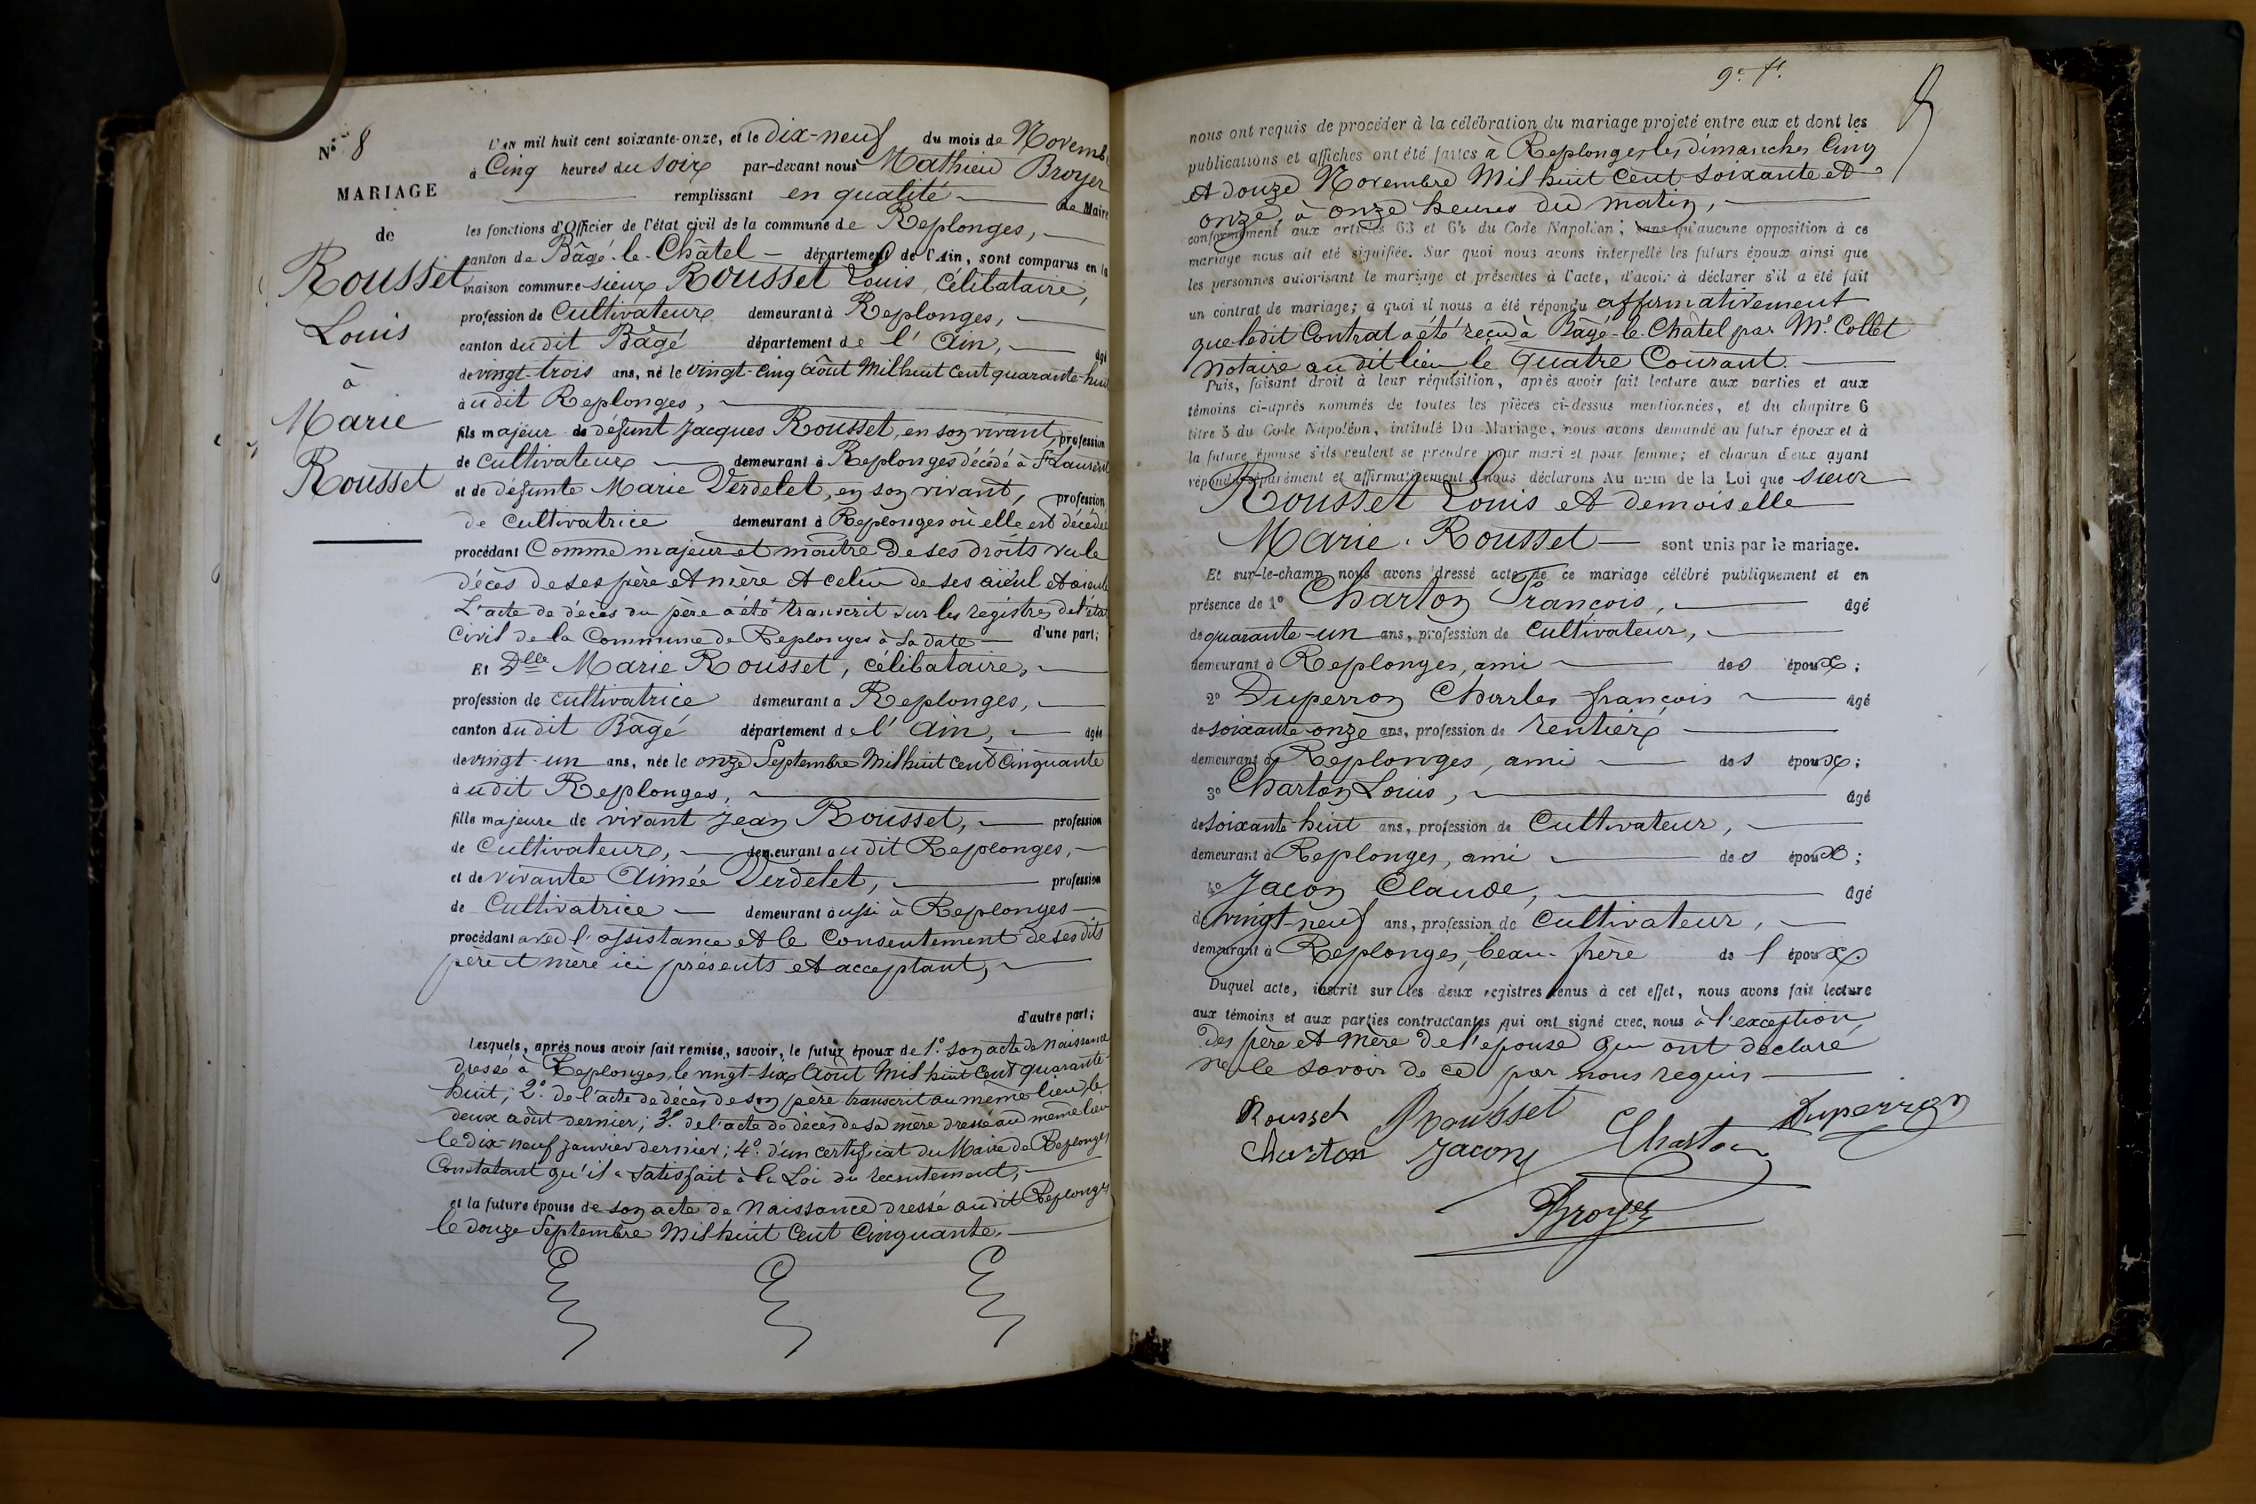 N° 8
MARIAGE
de
Rousset
Louis
à
Marie
Rousset
L'AN mil huit cent soixante-onze, et le dix-neuf du mois de Novemb
à Cinq heures du soir par-devant nous Mathieu Broyer
remplissant en qualité de Maire
les fonctions d'Officier de l'état civil de la commune de Replonges,
canton de Bâgé-le-Châtel département de l'Ain, sont comparus en la
maison commune sieur Rousset Louis, Célibataire,
profession de Cultivateur demeurant à Replonges,
canton dudit Bâgé département de l'Ain, âgé
de vingt-trois ans, né le vingt-cinq août Mil huit Cent quarante-huit
audit Replonges,
fils majeur de défunt Jacques Rousset, en son vivant, profession
de Cultivateur demeurant à Replonges décédé à St Laurent
et de défunte Marie Verdelet, en son vivant, profession
de Cultivatrice demeurant à Replonges où elle est décédée
procédant Comme majeur et maître de ses droits vu le
décès de ses père et mère et celui de ses aïeul et aïeule
L'acte de décès du père a été transcrit sur les registres de l'état
Civil de la Commune de Replonges à sa date d'une part;
Et Dlle Marie Rousset, célibataire,
profession de cultivatrice demeurant à Replonges,
canton dudit Bâgé département de l'Ain, âgée
de vingt-un ans, née le onze Septembre Mil huit Cent Cinquante
audit Replonges,
fille majeure de vivant Jean Rousset, profession
de Cultivateur, demeurant audit Replonges,
et de vivante Aimée Verdelet, profession
de Cultivatrice demeurant aussi à Replonges
procédant avec l'assistance et le Consentement de ses dits
père et mère ici présents et acceptant,
d'autre part;
Lesquels, après nous avoir fait remise, savoir, le futur époux de 1° son acte de naissance
dressé à Replonges, le vingt-six Août Mil huit Cent quarante-
huit; 2° de l'acte de décès de son père transcrit au même lieu, le
deux août dernier; 3° de l'acte de décès de sa mère dressé au même lieu
le dix-neuf janvier dernier; 4° d'un certificat du Maire de Replonges
Constatant qu'il a satisfait à la Loi du recrutement,
et la future épouse de son acte de Naissance dressé audit Replonges
le douze Septembre Mil huit Cent Cinquante.
9e ft.
nous ont requis de procéder à la célébration du mariage projeté entre eux et dont les
publications et affiches ont été faites à Replonges, les dimanches Cinq
et douze Novembre Mil huit Cent soixante et
onze, à onze heures du matin,
conformément aux articles 63 et 64 du Code Napoléon; sans qu'aucune opposition à ce
mariage nous ait été signifiée. Sur quoi nous avons interpellé les futurs époux ainsi que
les personnes autorisant le mariage et présentes à l'acte, d'avoir à déclarer s'il a été fait
un contrat de mariage; à quoi il nous a été répondu affirmativement
que ledit Contrat a été reçu à Bâgé-le-Châtel par Me Collet
Notaire audit lieu le quatre Courant.
Puis, faisant droit à leur réquisition, après avoir fait lecture aux parties et aux
témoins ci-après nommés de toutes les pièces ci-dessus mentionnées, et du chapitre 6
titre 5 du Code Napoléon, intitulé Du Mariage, nous avons demandé au futur époux et à
la future épouse s'ils veulent se prendre pour mari et pour femme; et chacun d'eux ayant
répondu séparément et affirmativement, nous déclarons Au nom de la Loi que sieur
Rousset Louis et demoiselle
Marie Rousset sont unis par le mariage.
Et sur-le-champ nous avons dressé acte de ce mariage célébré publiquement et en
présence de 1° Charton François, âgé
de quarante-un ans, profession de Cultivateur,
demeurant à Replonges, ami des époux;
2° Duperron Charles françois âgé
de soixante-onze ans, profession de rentier
demeurant à Replonges, ami des époux;
3° Charton Louis, âgé
de soixante-huit ans, profession de Cultivateur,
demeurant à Replonges, ami des époux;
4° Jacon Claude, âgé
de vingt-neuf ans, profession de Cultivateur,
demeurant à Replonges, beau-frère de l'époux.
Duquel acte, inscrit sur les deux registres tenus à cet effet, nous avons fait lecture
aux témoins et aux parties contractantes qui ont signé avec nous à l'exception
des père et mère de l'épouse qui ont déclaré
ne le savoir de ce par nous requis
Rousset Rousset Duperron
Charton Jacon Charton
Broyer